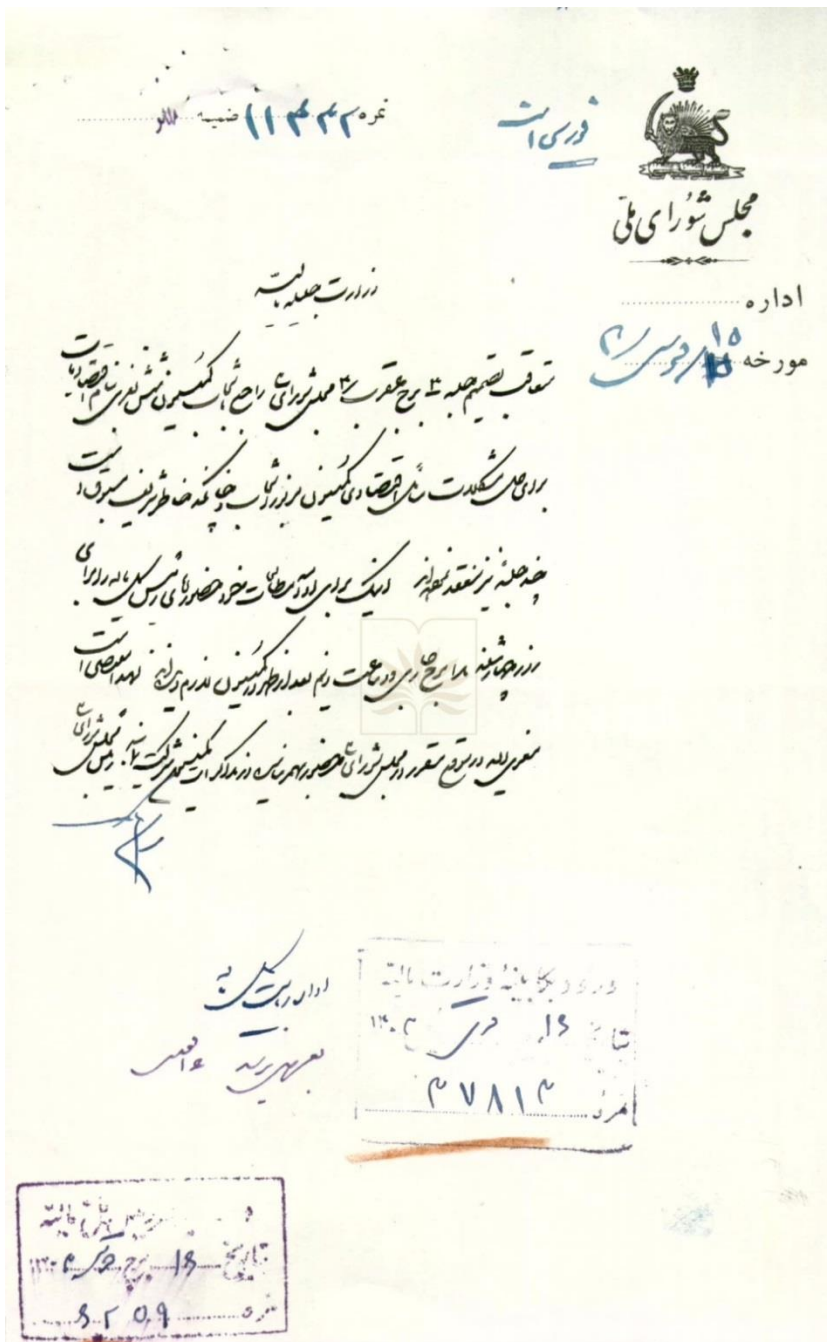 نمره ۱۱۴۳۲ ضمیمه
فوری است
مجلس شورای ملی
اداره
مورخه ۱۵ قوس ۳
وزارت جلیله مالیه
متعاقب تصمیم جلسه ۳ برج عقرب مجلس شورای راجع بانتخاب کمیسیون شش نفری بنام اقتصادیات
برای حل مشکلات اقتصادی کمیسیون مزبور انتخاب و چنانکه خاطر شریف مسبوق است
چند جلسه نیز منعقد نموده‌اند اینک برای ادامه مطالعات خود حضور آقای رئیس کل مالیه را برای
روز چهارشنبه ۱۸ برج جاری دو ساعت و نیم بعد از ظهر در کمیسیون لازم دیده‌اند لهذا مقتضی است
معزی‌الیه در موقع مقرر در مجلس شورای حضور بهم رسانیده در مذاکرات کمیسیون شرکت نمایند. رئیس مجلس شورای
اداره ریاست کل
ورود کابینه وزارت مالیه
تاریخ ۱۶ قوس ۱۳۰۳
نمره ۳۷۸۱۳
تاریخ ۱۶ برج قوس ۱۳۰۳
نمره ۶۲۵۹